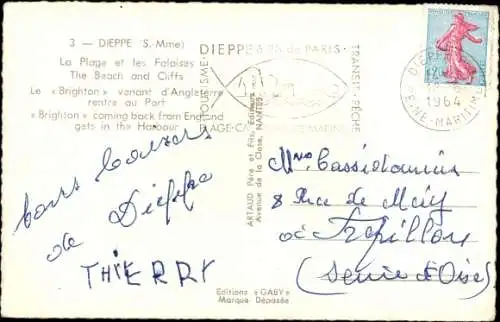 3 — DIEPPE (S.-Mme)
La Plage et les Falaises
The Beach and Cliffs
Le « Brighton » venant d'Angleterre
rentre au Port
« Brighton » coming back from England
gets in the Harbour
DIEPPE à 2h de PARIS
TRANSIT-PÊCHE
TOURISME
PLAGE-CA
DIEPPE
1964
SEINE-MARITIME
ARTAUD Père et Fils, Éditeurs
Avenue de la Close, NANTES
bons baisers
de Dieppe
THIERRY
8 Rue de
à
(Seine et Oise)
Editions « GABY »
Marque Déposée